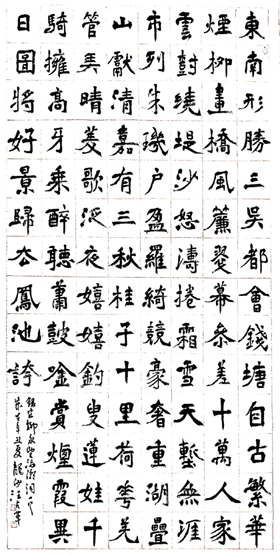 東南形勝三吳都會錢塘自古繁華
煙柳畫橋風簾翠幕參差十萬人家
雲樹繞堤沙怒濤捲霜雪天塹無涯
市列珠璣戶盈羅綺競豪奢重湖疊
山獻清嘉有三秋桂子十里荷花羌
管弄晴菱歌泛夜嬉嬉釣叟蓮娃千
騎擁高牙乘醉聽簫鼓吟賞煙霞異
日圖將好景歸去鳳池誇
錄宋柳永望海潮詞
辛丑夏